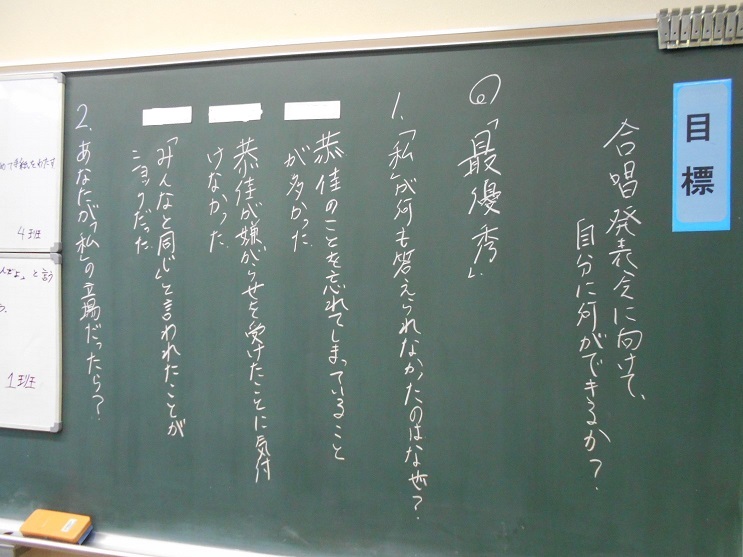 目標
合唱発表会に向けて、
自分に何ができるか？
@「最優秀」
1.「私」が何も答えられなかたのはなぜ？
恭佳のことを忘れてしまっていること
が多かった
恭佳が嫌がらせを受けたことに気付
けなかった
「みんなと同じ」と言われたことが
ショックだった
2. あなたが「私」の立場だったら？
4班
んだよ。と言う
1班